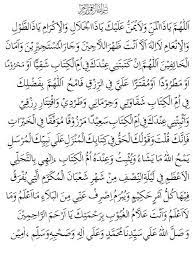 بِسْمِ اللَّهِ الرَّحْمَنِ الرَّحِيمِ
اَللّٰهُمَّ يَا ذَا الْمَنِّ وَلَا يُمَنُّ عَلَيْكَ يَا ذَا الْجَلَالِ وَالْإِكْرَامِ يَا ذَا الطَّوْلِ
وَالْإِنْعَامِ لَا إِلٰهَ إِلَّا أَنْتَ ظَهْرَ اللَّاجِينَ وَجَارَ الْمُسْتَجِيرِينَ وَأَمَانَ
الْخَائِفِينَ اللّٰهُمَّ إِنْ كُنْتَ كَتَبْتَنِي عِنْدَكَ فِي أُمِّ الْكِتَابِ شَقِيًّا أَوْ مَحْرُومًا
أَوْ مَطْرُودًا أَوْ مُقَتَّرًا عَلَيَّ فِي الرِّزْقِ فَامْحُ اللّٰهُمَّ بِفَضْلِكَ
فِي أُمِّ الْكِتَابِ شَقَاوَتِي وَحِرْمَانِي وَطَرْدِي وَاقْتِتَارَ رِزْقِي
وَأَثْبِتْنِي عِنْدَكَ فِي أُمِّ الْكِتَابِ سَعِيدًا مَرْزُوقًا مُوَفَّقًا لِلْخَيْرَاتِ
فَإِنَّكَ قُلْتَ وَقَوْلُكَ الْحَقُّ فِي كِتَابِكَ الْمُنْزَلِ عَلَى نَبِيِّكَ الْمُرْسَلِ
يَمْحُو اللّٰهُ مَا يَشَاءُ وَيُثْبِتُ وَعِنْدَهُ أُمُّ الْكِتَابِ إِلٰهِي بِالتَّجَلِّي
الْأَعْظَمِ فِي لَيْلَةِ النِّصْفِ مِنْ شَهْرِ شَعْبَانَ الْمُكَرَّمِ الَّتِي يُفْرَقُ
فِيهَا كُلُّ أَمْرٍ حَكِيمٍ وَيُبْرَمُ اِصْرِفْ عَنِّي مِنَ الْبَلَاءِ مَا أَعْلَمُ وَمَا
لَا أَعْلَمُ وَأَنْتَ عَلَّامُ الْغُيُوبِ بِرَحْمَتِكَ يَا أَرْحَمَ الرَّاحِمِينَ
وَصَلَّى اللّٰهُ عَلَى سَيِّدِنَا مُحَمَّدٍ وَعَلَى آلِهِ وَصَحْبِهِ وَسَلَّمَ ، آمِين